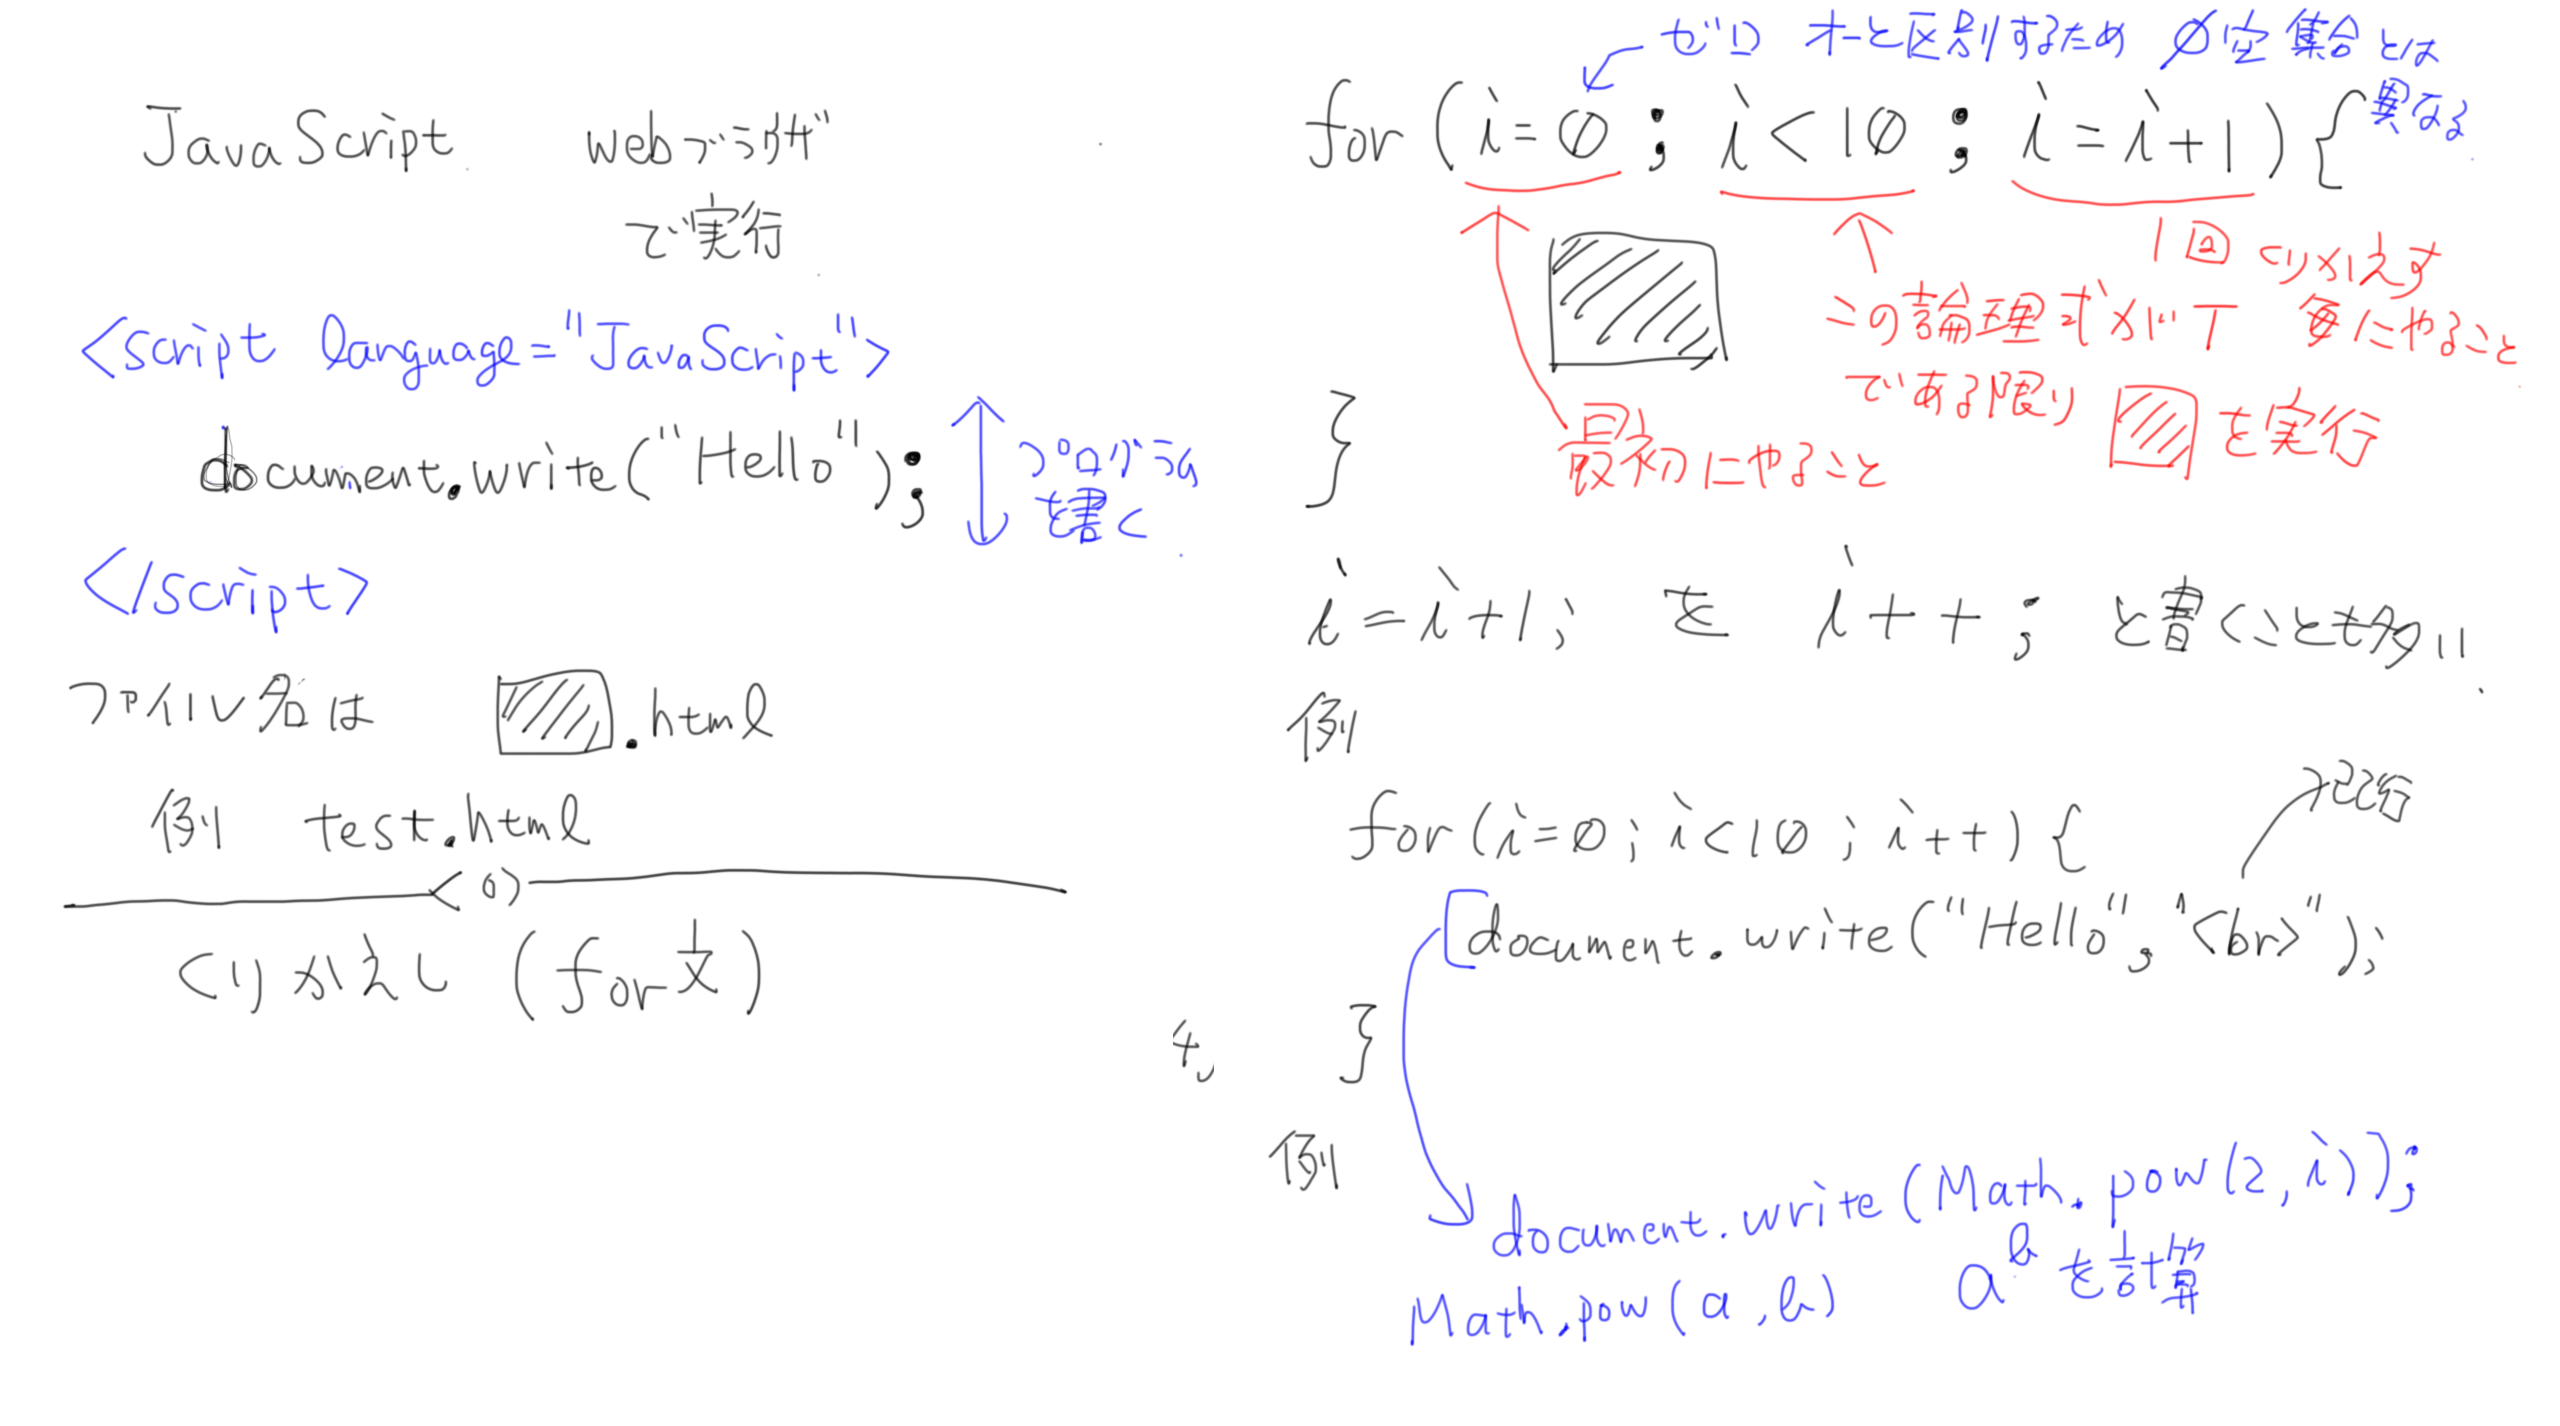 JavaScript webブラウザ
で実行
<script language="JavaScript">
document.write("Hello");
プログラム
を書く
</script>
ファイル名は .html
例 test.html
くりかえし (for文)
ゼロ オーと区別するため ∅空集合とは
異なる
for (i=0; i<10; i=i+1){
1回くりかえす
毎にやること
この論理式がT
である限り を実行
最初にやること
}
i=i+1; を i++; と書くことも多い
例
for(i=0; i<10; i++){
改行
document.write("Hello","<br>");
}
例
document.write(Math.pow(2,i));
Math.pow(a,b) a^b を計算